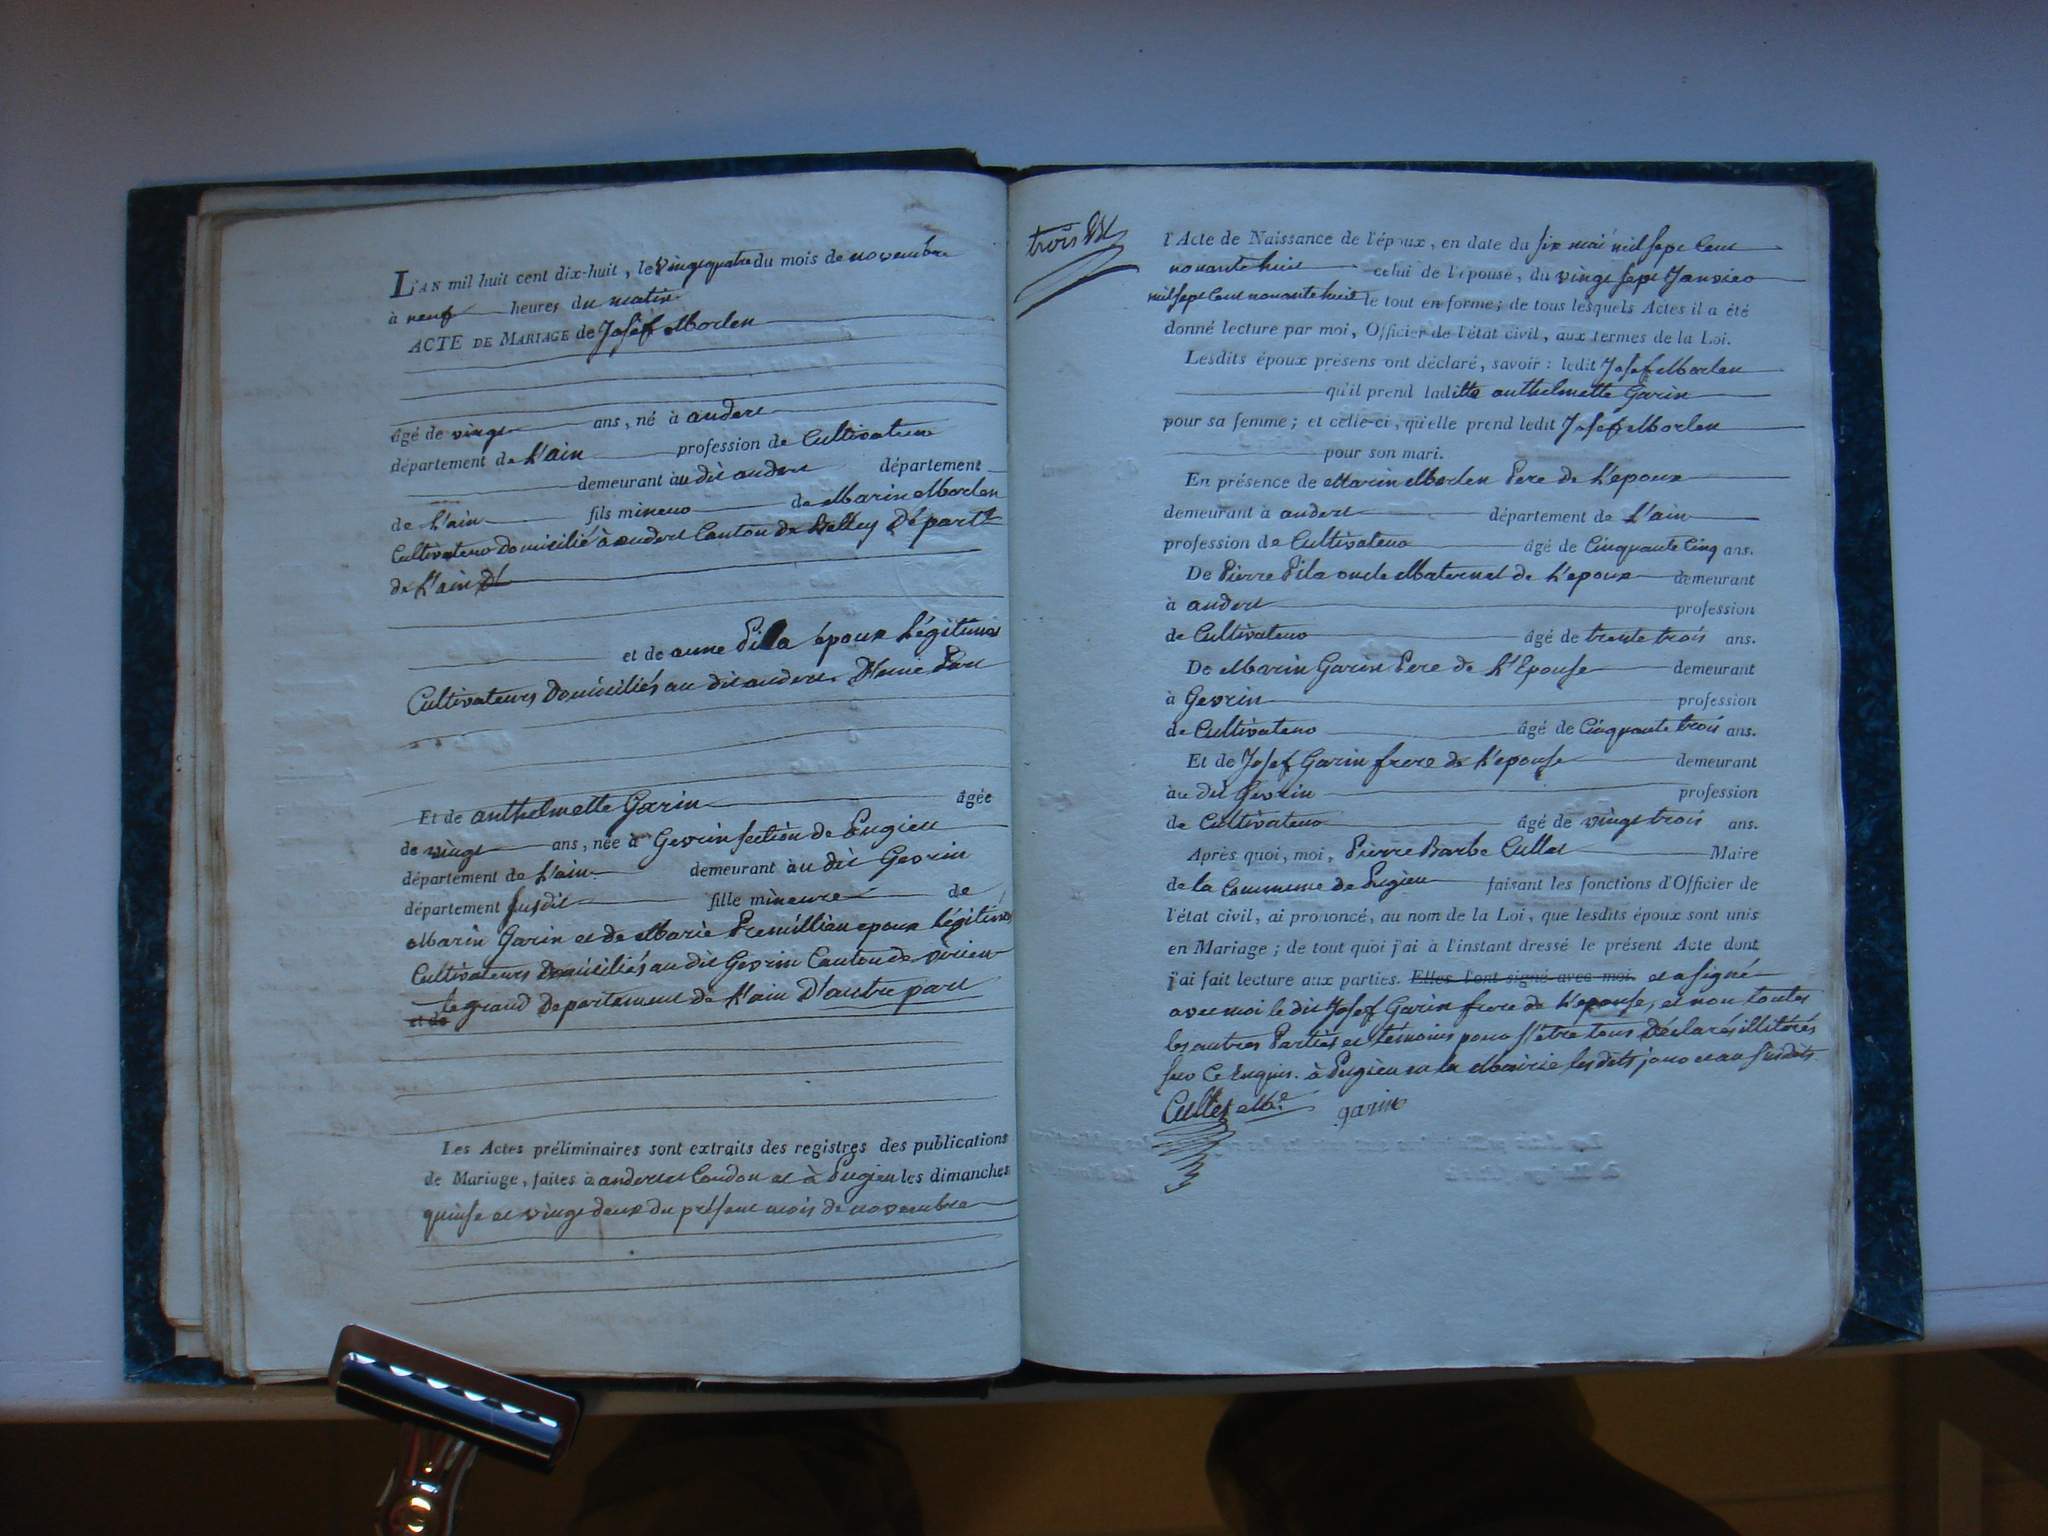 L'AN mil huit cent dix-huit, le vingt quatre du mois de novembre
à neuf heures du matin.
ACTE DE MARIAGE de Josef Morlen
âgé de vingt ans, né à andert
département de L'ain profession de Cultivateur
demeurant au dit andert département
de L'ain fils mineur de Marin Morlen
Cultivateur Domicilié à andert Canton de Belley Départt
de L'ain
et de anne Pila époux Légitimes
Cultivateurs Domiciliés au dit andert. D'une Part
Et de anthelmette Garin âgée
de vingt ans, née à Gevrin section de Pugieu
département de L'ain demeurant au dit Gevrin
département susdit fille mineure de
Marin Garin et de Marie Premillieu epoux Légitimes
Cultivateurs Domiciliés au dit Gevrin Canton de virieu
et de le grand Departement de L'ain D'autre part
Les Actes préliminaires sont extraits des registres des publications
de Mariage, faites à andert et Condon et à Pugieu les dimanches
quinse et vingt deux du présent mois de novembre
trois
l'Acte de Naissance de l'époux, en date du six mai mil sept Cent
nonante huit celui de l'épouse, du vingt sept Janvier
mil sept Cent nonante huit le tout en forme; de tous lesquels Actes il a été
donné lecture par moi, Officier de l'état civil, aux termes de la Loi.
Lesdits époux présens ont déclaré, savoir: ledit Josef Morlen
qu'il prend laditte anthelmette Garin
pour sa femme; et celle-ci, qu'elle prend ledit Josef Morlen
pour son mari.
En présence de Marin Morlen Pere de L'epoux
demeurant à andert département de L'ain
profession de Cultivateur âgé de Cinquante Cinq ans.
De Pierre Pila oncle Maternel de L'epoux demeurant
à andert profession
de Cultivateur âgé de trente trois ans.
De Marin Garin Pere de L'Epouse demeurant
à Gevrin profession
de Cultivateur âgé de Cinquante trois ans.
Et de Josef Garin frere de L'epouse demeurant
au dit Gevrin profession
de Cultivateur âgé de vingt trois ans.
Après quoi, moi, Pierre Barbe Cullet Maire
de la Commune de Pugieu faisant les fonctions d'Officier de
l'état civil, ai prononcé, au nom de la Loi, que lesdits époux sont unis
en Mariage; de tout quoi j'ai à l'instant dressé le présent Acte dont
j'ai fait lecture aux parties. Elles l'ont signé avec moi. et a signé
avec moi le dit Josef Garin frere de L'epouse, et non toutes
les autres Parties et témoins pour s'être tous Déclarés illitérés
sur ce Enquis. à Pugieu en la Mairie les dits jour et an susdits.
Cullet Mre garin